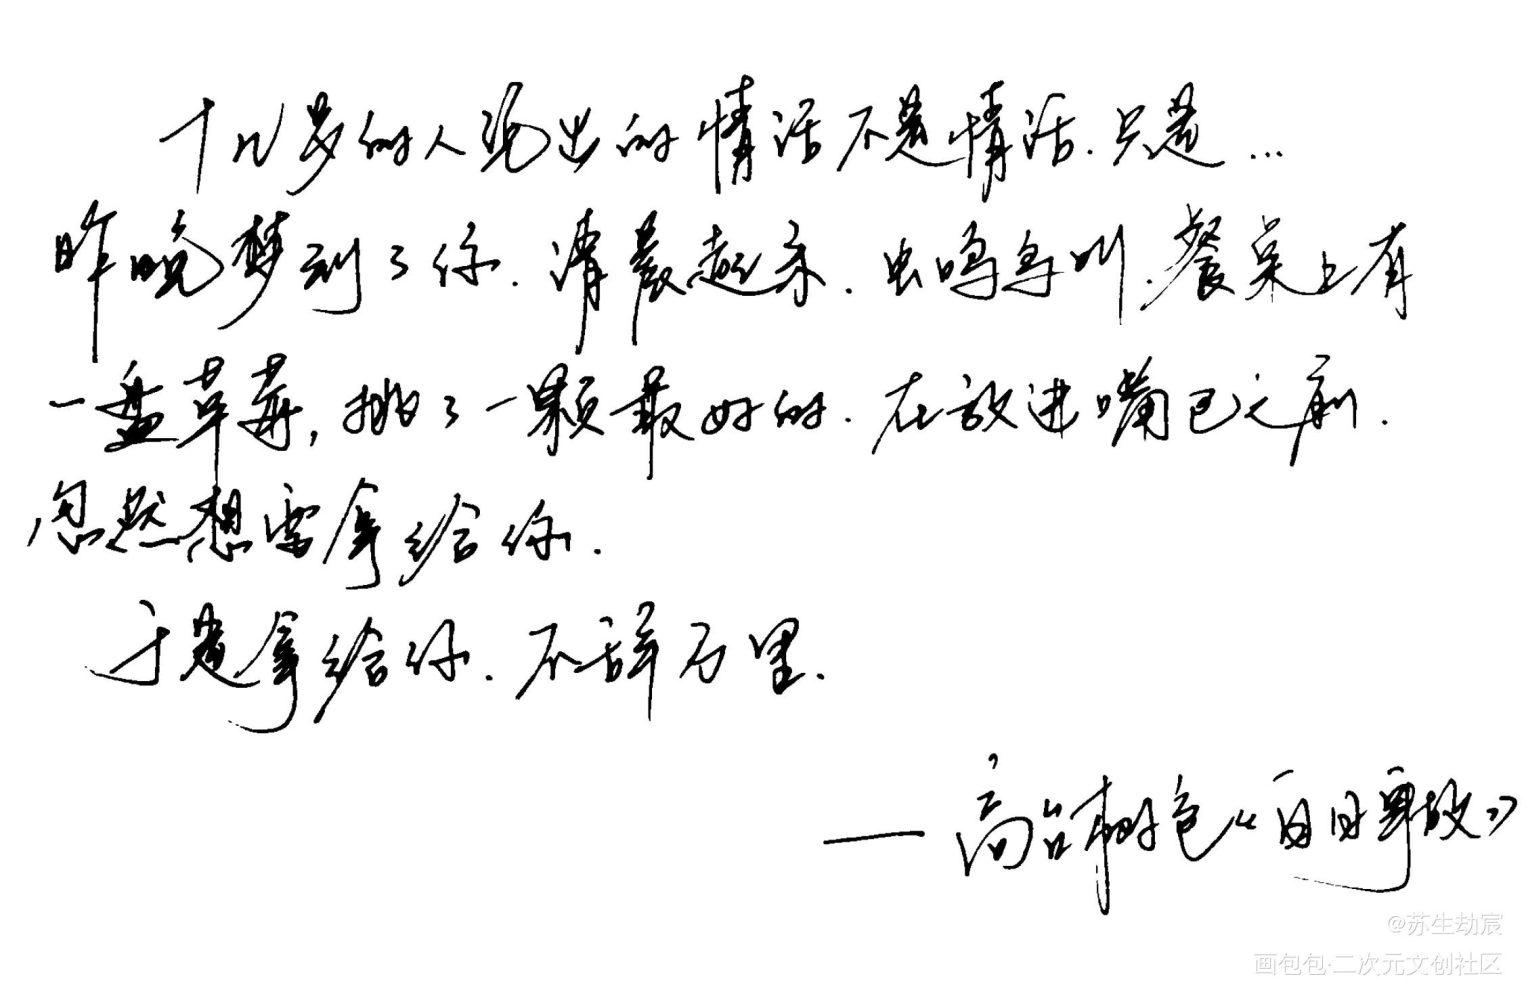 十几岁的人说出的情话不是情话.只是...
昨晚梦到了你.清晨起来.虫鸣鸟叫.餐桌上有
一盘草莓,挑了一颗最好的.在放进嘴巴之前.
忽然想要拿给你.
于是拿给你.不辞万里.
——高台树色《白日事故》
@苏生劫宸
画包包·二次元文创社区